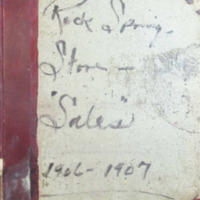 Rock Spring
Store —
"Sales"
1906-1907